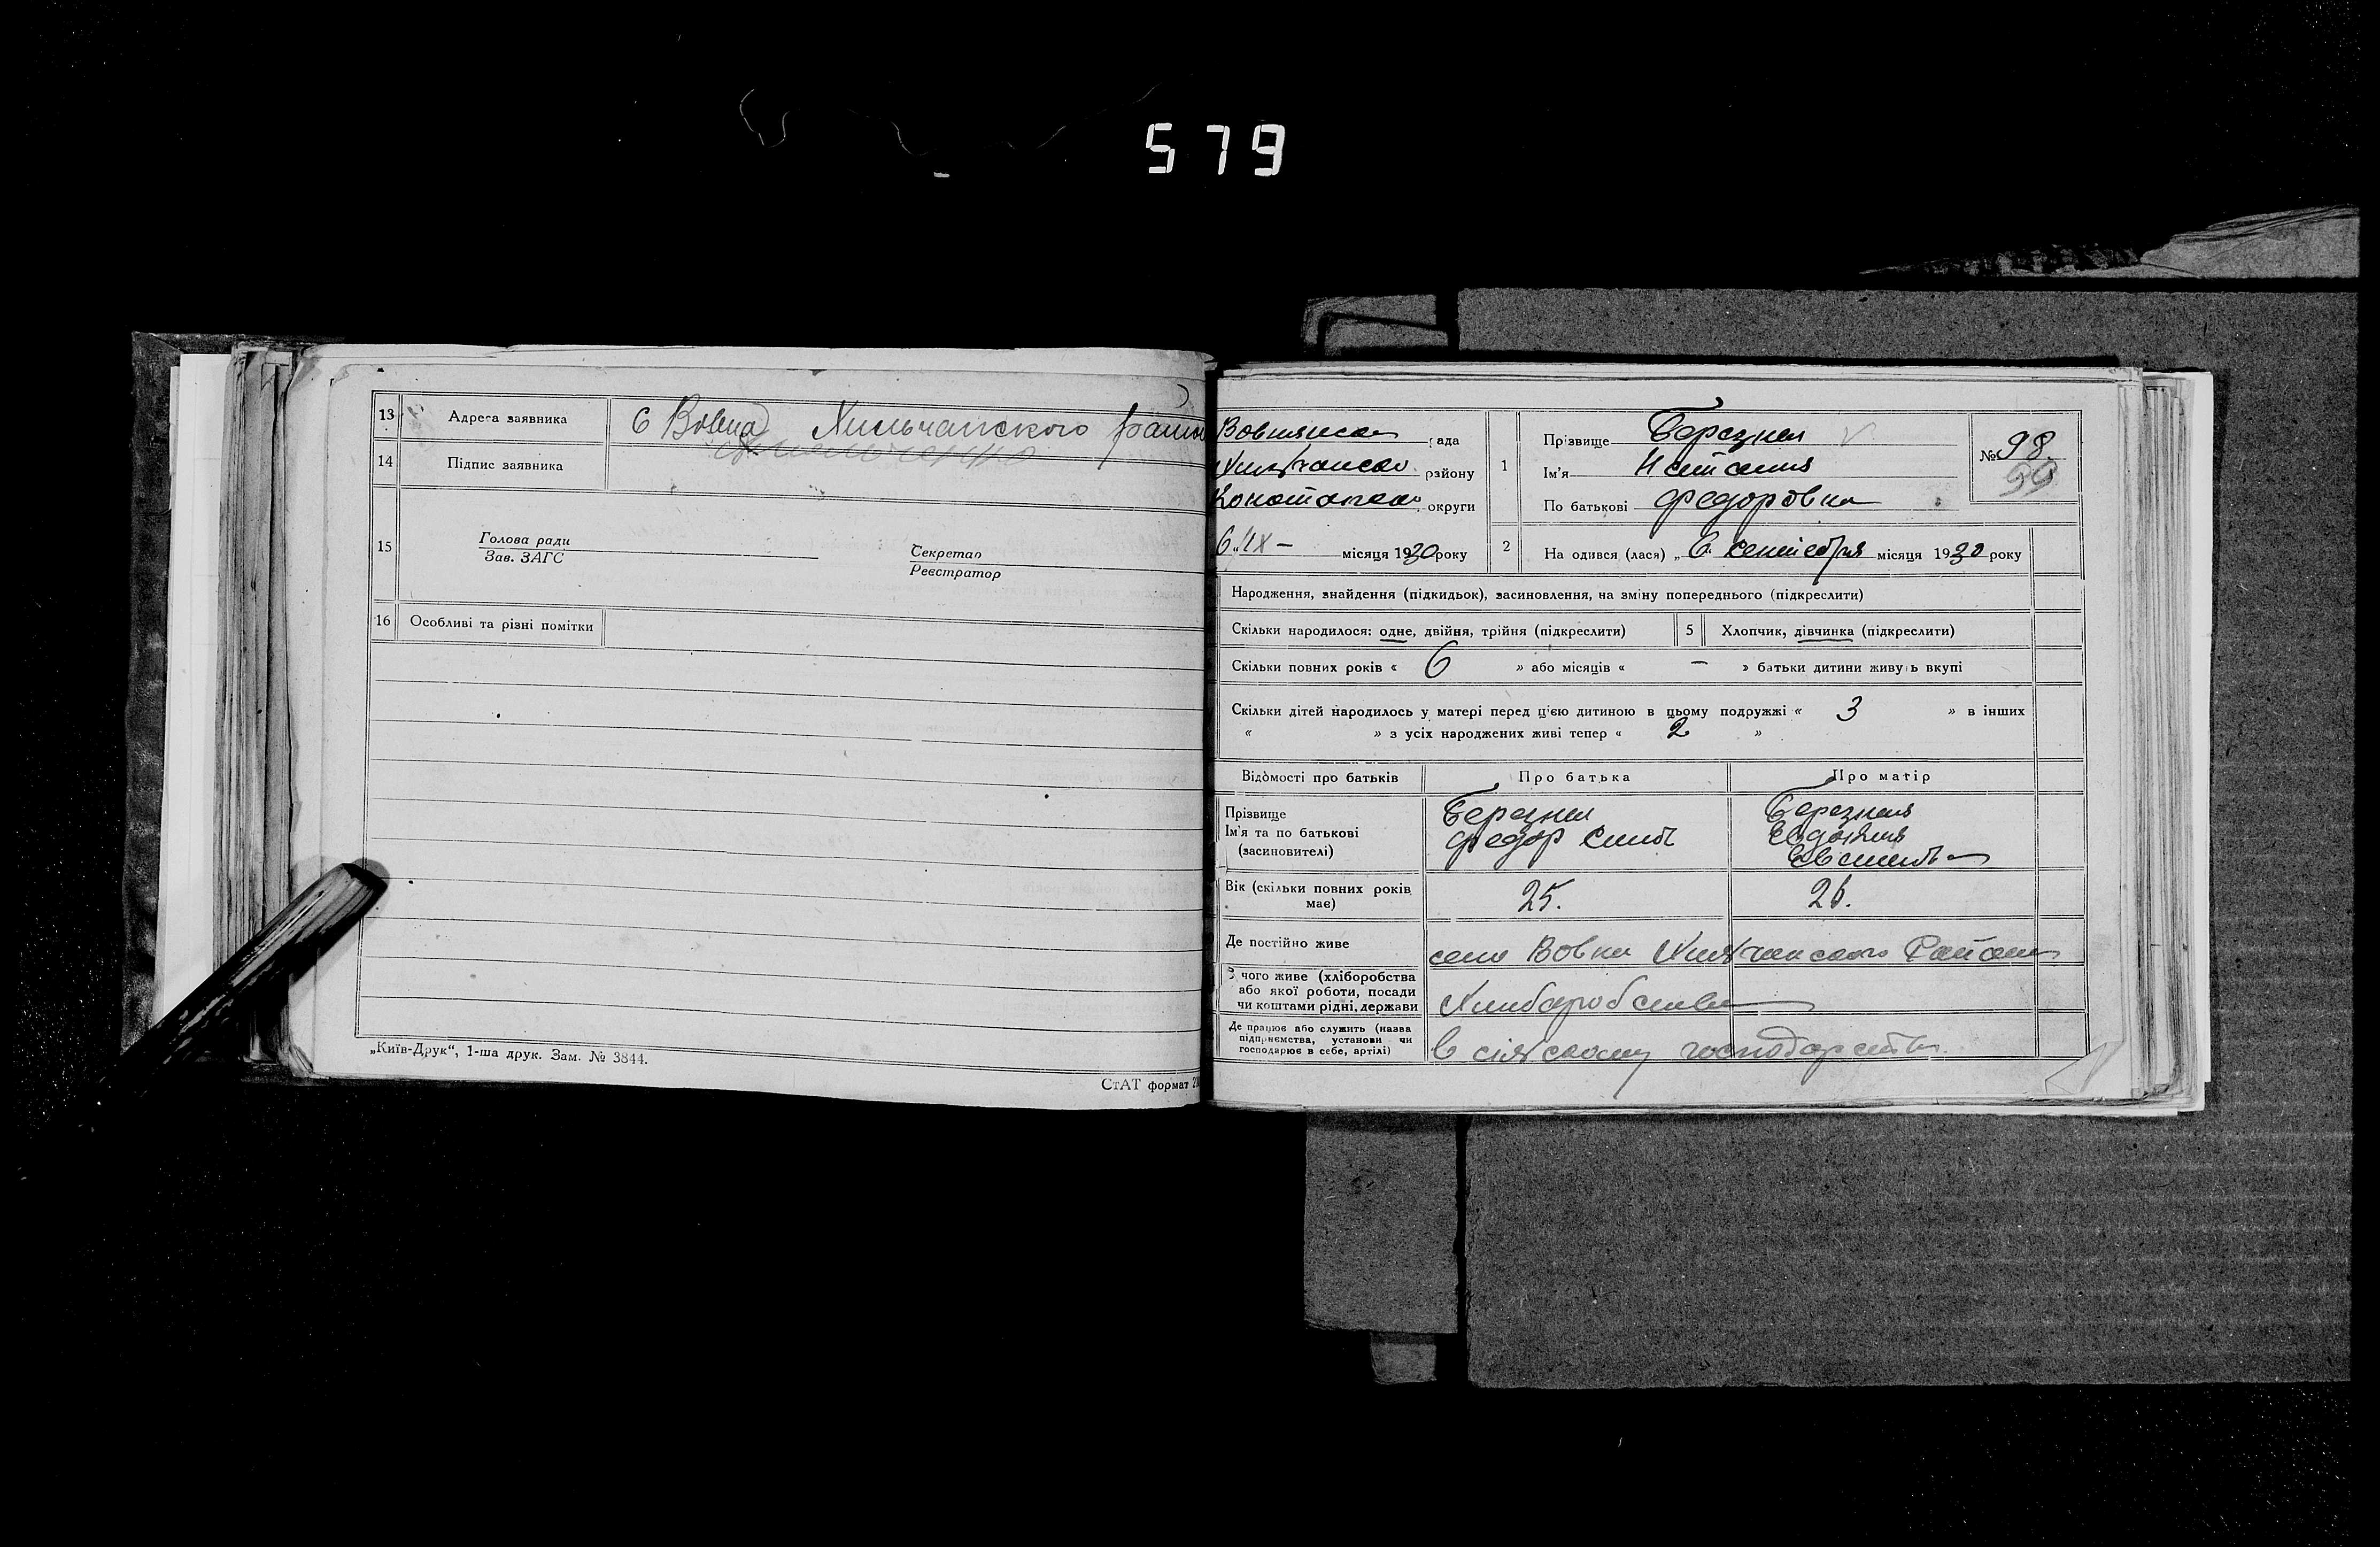 579
13 Адреса заявника С Вовна Хильчанского
14 Підпис заявника
15 Голова ради
Зав. ЗАГС
Секретар
Реєстратор
16 Особливі та різні помітки
„Київ-Друк“, 1-ша друк. Зам. № 3844.
СтАТ формат
рада
району
округи
6 „IX – місяця 1930 року
1 Прізвище Березная
Ім'я Наталия
По батькові Федоровна
№ 98.
99
2 На одився (лася) „ 6 сентебря місяця 1930 року
Народження, знайдення (підкидьок), засиновлення, на зміну попереднього (підкреслити)
Скільки народилося: одне, двійня, трійня (підкреслити) 5 Хлопчик, дівчинка (підкреслити)
Скільки повних років « 6 » або місяців « – » батьки дитини живуь вкупі
Скільки дітей народилось у матері перед цією дитиною в цьому подружжі « 3 » в інших
« » з усіх народжених живі тепер « 2 »
Відомості про батьків Про батька Про матір
Прізвище Березная
Ім'я та по батькові Федор
(засиновителі)
Вік (скільки повних років 25. 26.
має)
Де постійно живе село Вовна
З чого живе (хліборобства
або якої роботи, посади
чи коштами рідні, держави
Де працює або служить (назва
підприємства, установи чи
господарює в себе, артілі) в сільскому господарстві